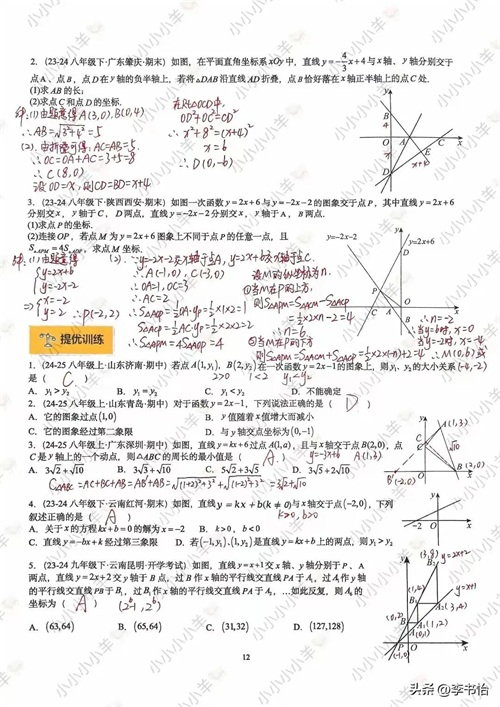 2. (23-24 八年级下·广东肇庆·期末) 如图，在平面直角坐标系 xOy 中，直线 y=-4/3x+4 与 x 轴、y 轴分别交于
点 A、点 B，点 D 在 y 轴的负半轴上，若将△DAB 沿直线 AD 折叠，点 B 恰好落在 x 轴正半轴上的点 C 处.
(1)求 AB 的长；
(2)求点 C 和点 D 的坐标.
解:(1)由题意得 A(3,0), B(0,4)
∴AB=√3²+4²=5
(2)由折叠可得: AC=AB=5.
∴OC=OA+AC=3+5=8
∴C(8,0)
设OD=x, 则CD=BD=x+4
在Rt△OCD中,
OD²+OC²=CD²
∴x²+8²=(x+4)²
x=6
∴D(0,-6)
3. (23-24 八年级下·陕西西安·期末) 如图一次函数 y=2x+6 与 y=-2x-2 的图象交于点 P，其中直线 y=2x+6
分别交 x，y 轴于 C，D 两点，直线 y=-2x-2 分别交 x，y 轴于 A，B 两点.
(1)求点 P 的坐标.
(2)连接 OP，若点 M 为 y=2x+6 图象上不同于点 P 的任意一点，且
S△APM=4S△AOP，求点 M 坐标.
解:(1)由题意得
{y=2x+6
y=-2x-2
⇒{x=-2
y=2
∴P(-2,2)
(2)∵y=-2x-2交x轴于点A, y=2x+6交x轴于点C.
∴A(-1,0), C(-3,0)
∴OA=1, OC=3
∴AC=2
S△AOP=1/2OA·yP=1/2×1×2=1
S△ACP=1/2AC·yP=1/2×2×2=2
∴S△APM=4S△AOP=4
设M的纵坐标为n.
①当M在P的上方,
则S△APM=S△ACM-S△ACP
=1/2×2×n-2=4
∴n=6
②当M在P的下方
则S△APM=S△ACM+S△ACP=1/2×2×(-n)+2=4
∴n=-2
当y=6时, x=0
当y=-2时, x=-4
∴M(0,6)或(-4,-2)
提优训练
1. (24-25 八年级上·山东济南·期中) 若点 A(1,y₁)，B(2,y₂) 在一次函数 y=2x-1 的图象上，则 y₁、y₂ 的大小关系
是（ C ）
2>0 1<2 y₁<y₂
A. y₁>y₂ B. y₁=y₂ C. y₁<y₂ D. 不能确定
2. (24-25 八年级上·山东青岛·期中) 对于函数 y=2x-1，下列说法正确的是（ D ）
A. 它的图象过点(1,0) B. y 值随着 x 值增大而减小
C. 它的图象经过第二象限 D. 与 y 轴交点坐标为(0,-1)
3. (24-25 八年级上·广东深圳·期中) 如图，直线 y=kx+6 过点 A(1,a)，且与 x 轴交于点 B(2,0)，点
C 是 y 轴上的一个动点，则△ABC 的周长的最小值是（ A ）
y=-3x+6 A(1,3)
A. 3√2+√10 B. 3√3+√10 C. 5√2+3√5 D. 3√5+2√10
C△ABC=AC+BC+AB=AB'+AB=√(1+2)²+3²+√(1-2)²+3²=3√2+√10
4. (23-24 八年级上·云南红河·期末) 如图，直线 y=kx+b(k≠0)与 x 轴交于点(-2,0)，下列
叙述正确的是（ A ）
k>0, b>0
A. 关于 x 的方程 kx+b=0 的解为 x=-2 B. k>0，b<0
C. 直线 y=-bx+k 经过第三象限 D. 若(-1,y₁)、(1,y₂)是直线 y=kx+b 上的两点，则 y₁>y₂
5. (23-24 九年级下·云南昆明·开学考试) 如图，直线 y=x+1 交 x 轴、y 轴分别于 P、A
两点，直线 y=2x+2 交 y 轴于 B 点，过 B 作 x 轴的平行线交直线 PA 于 A₁，过 A₁ 作 y 轴
的平行线交直线 PB 于 B₁，过 B₁ 作 x 轴的平行线交直线 PA 于 A₂，…如此反复，则 A₆ 的
坐标为（ A ）
(2⁶-1, 2⁶)
A. (63,64) B. (65,64) C. (31,32) D. (127,128)
12
头条 @李书怡